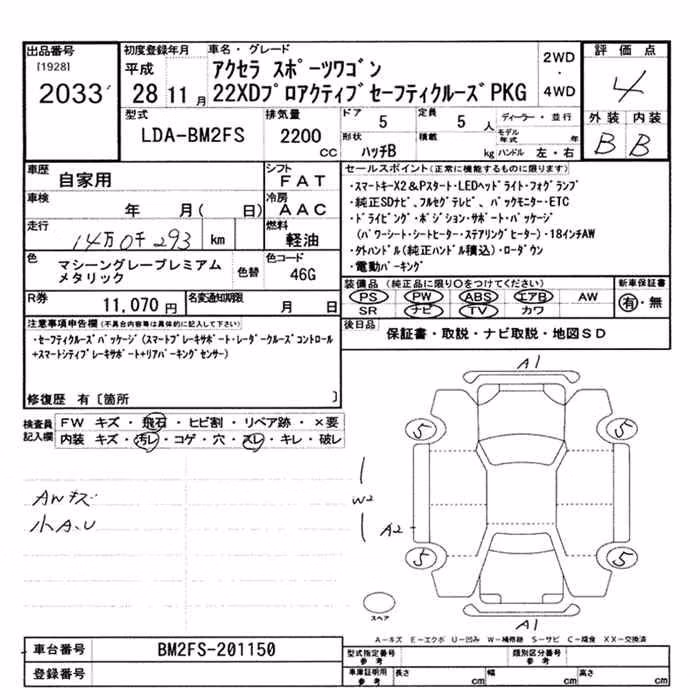 出品番号
[1928]
2033
初度登録年月
平成
28 11 月
車名・グレード
アクセラ スポーツワゴン
22XDプロアクティブセーフティクルーズPKG
2WD
・
4WD
評価点
4
外装 内装
B B
型式
LDA-BM2FS
排気量
2200
CC
ドア
5
定員
5 人
ディーラー・並行
形状
ハッチB
積載
kg
モデル年式
年
ハンドル 左・右
車歴
自家用
シフト
FAT
車検
年 月( 日)
冷房
AAC
走行
14万0千293 km
燃料
軽油
色
マシーングレープレミアム
メタリック
色替
色コード
46G
R券
11,070 円
名変通知期限
月 日
セールスポイント(正常に機能するものに限ります)
・スマートキーX2&Pスタート・LEDヘッドライト・フォグランプ
・純正SDナビ、フルセグテレビ、バックモニター・ETC
・ドライビング・ポジション・サポート・パッケージ
(パワーシート・シートヒーター・ステアリングヒーター)・18インチAW
・外ハンドル(純正ハンドル積込)・ローダウン
・電動パーキング
装備品 (純正品に限り○をつけてください)
PS PW ABS エアB AW
SR ナビ TV カワ
新車保証書
有・無
後日品
保証書・取説・ナビ取説・地図SD
注意事項申告欄(不具合内容等は具体的に記入して下さい)
・セーフティクルーズパッケージ(スマートブレーキサポート・レーダークルーズコントロール
+スマートシティブレーキサポート+リアパーキングセンサー)
修復歴 有〔箇所 〕
検査員
記入欄
FW キズ・飛石・ヒビ割・リペア跡・×要
内装 キズ・汚レ・コゲ・穴・スレ・キレ・破レ
AWキズ
小A.U
A1
5
5
W2
A2
5
5
スペア
A1
A-キズ E-エクボ U-凹み W-補修跡 S-サビ C-腐食 XX-交換済
車台番号
BM2FS-201150
登録番号
型式指定番号
参考
類別区分番号
参考
車庫証明用
参考
長さ
cm
幅
cm
高さ
cm